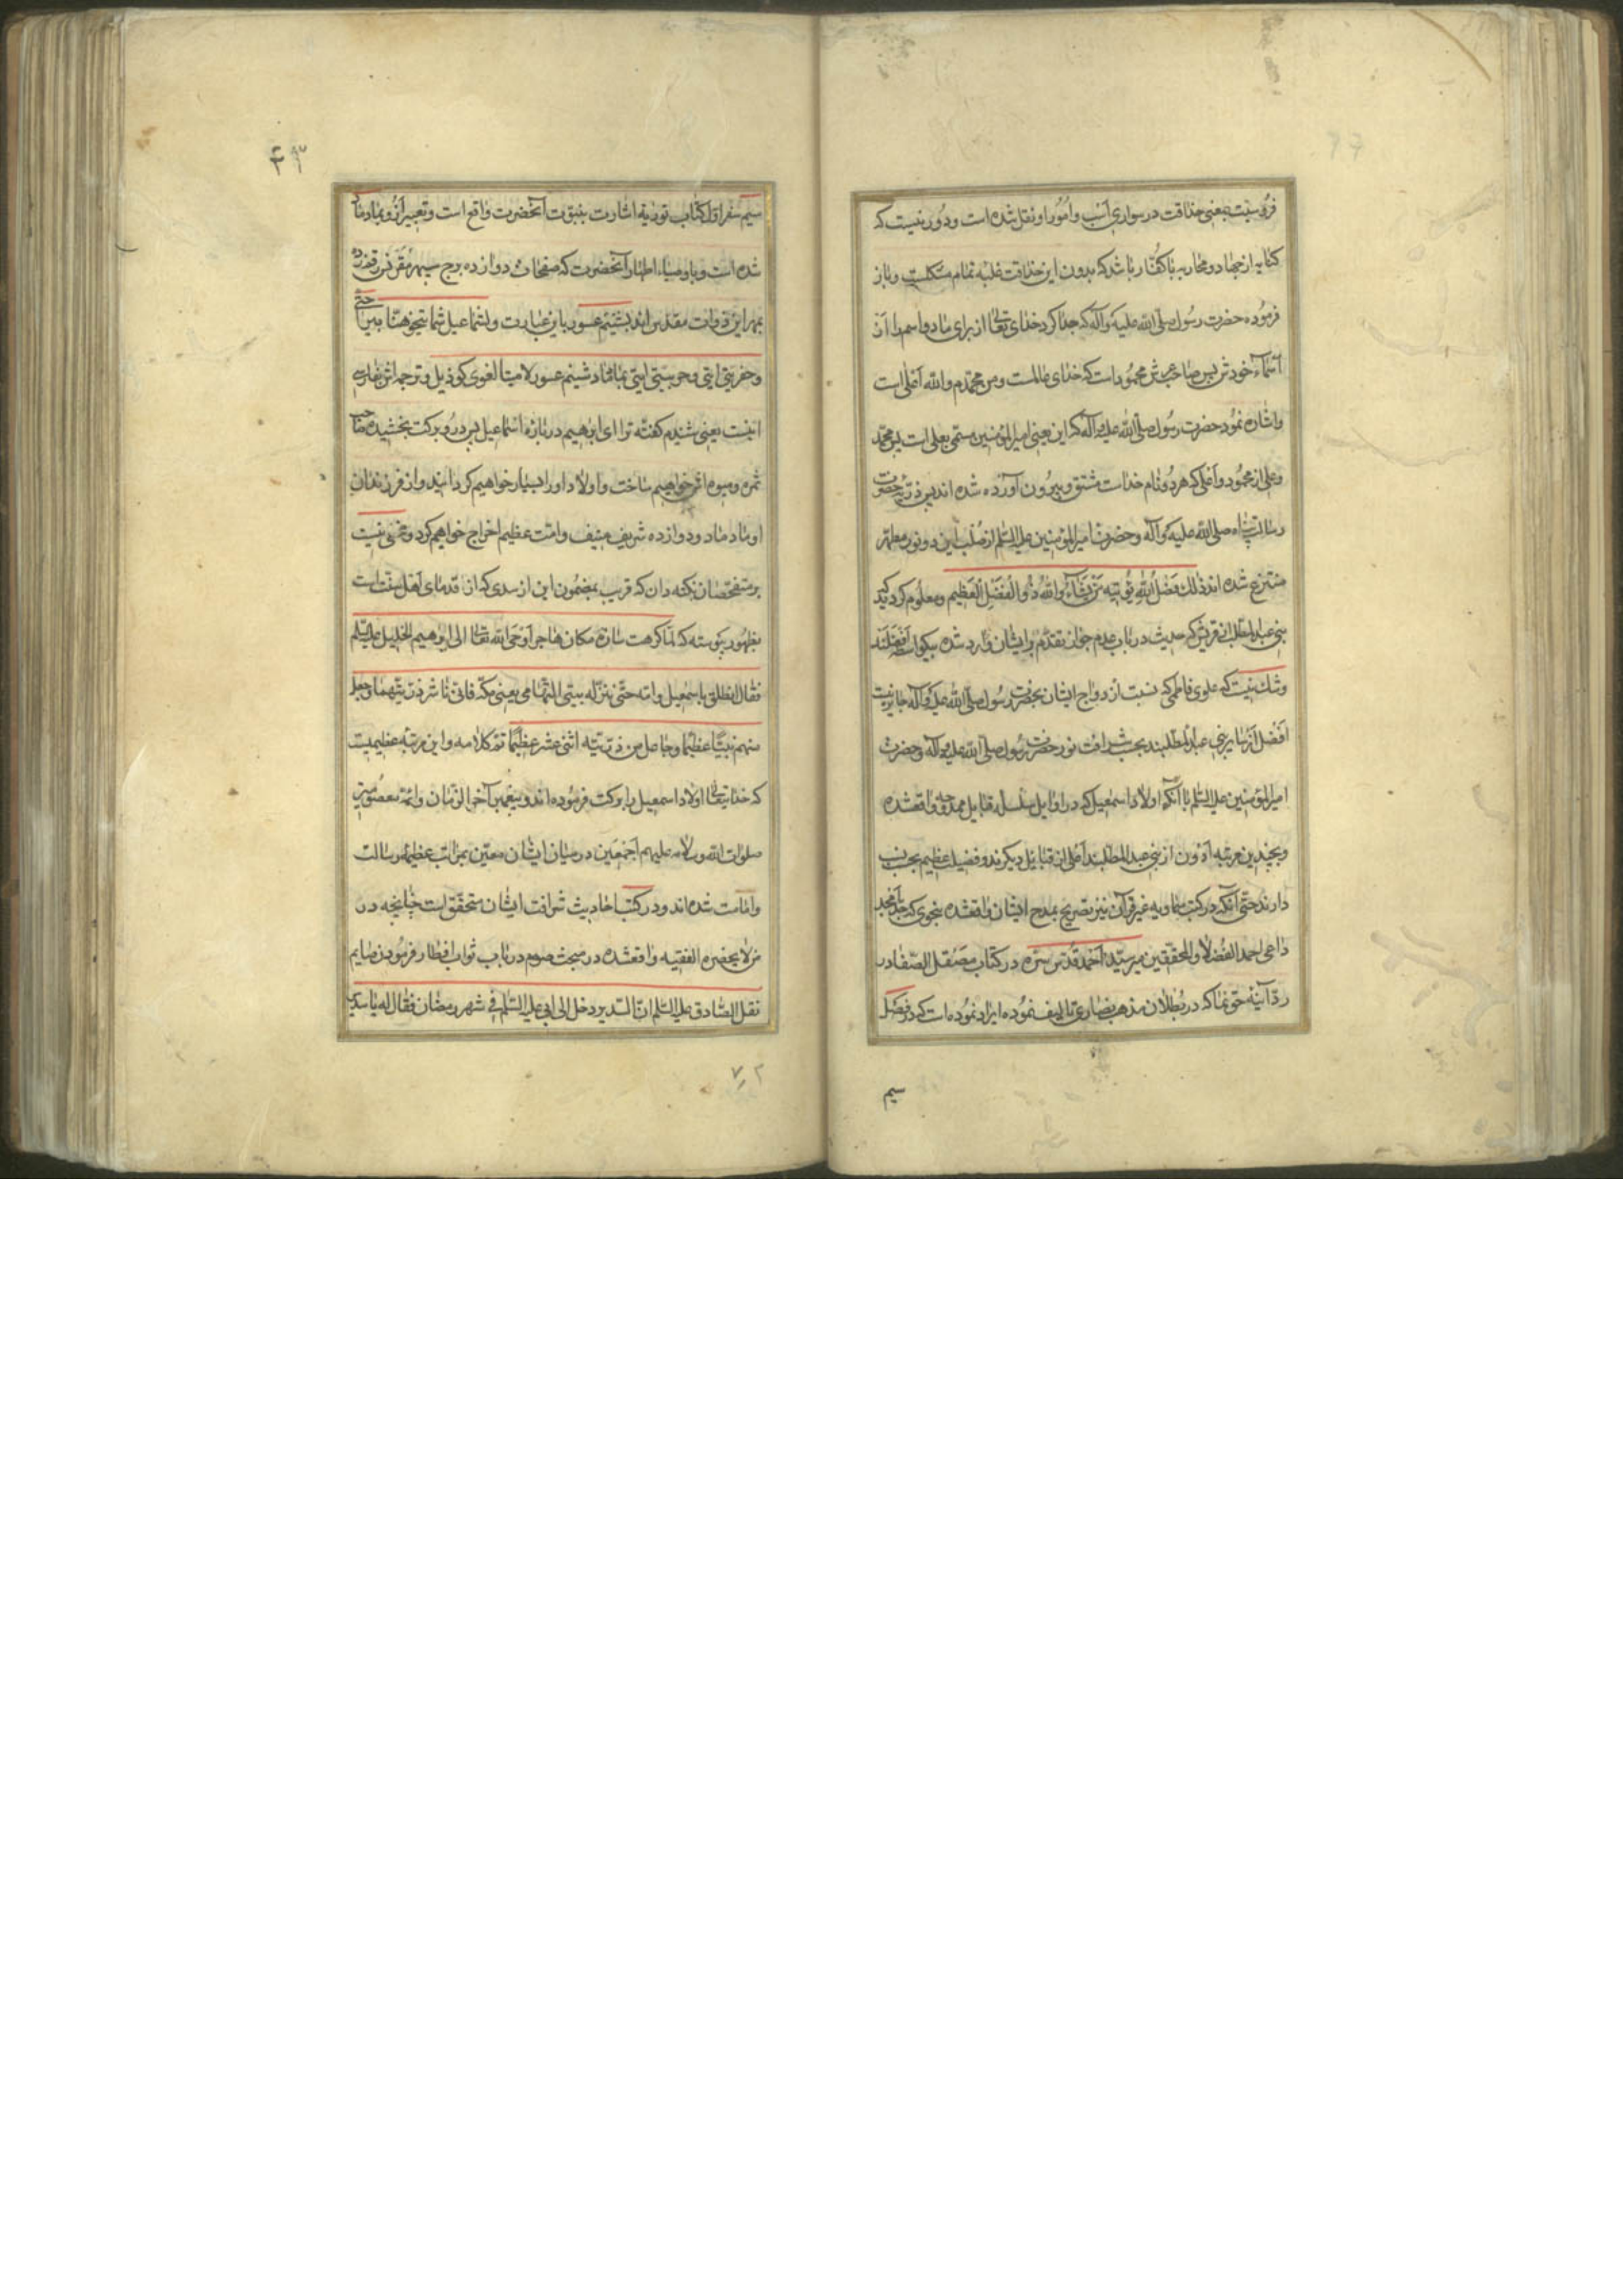 فروسیّت بمعنی حذاقت در سواری اسب و امور او نقل شده است و دور نیست که
کنایه از جهاد و محاربه با کفّار باشد که بدون این حذاقت غلبه تمام مشکلست و باز
فرموده حضرت رسول صلی الله علیه و آله که جدا کرد خدای تعالی از برای ما دو اسم را از
اسماء خودش پس صاحب عرش محمود است که خدای عالمست و من محمّدم و الله اعلی است
و اشاره نمود حضرت رسول صلی الله علیه و آله که این یعنی امیرالمؤمنین مسمّی بعلی است پس محمّد
و علی از محمود و اعلی که هر دو نام خداست مشتق و بیرون آورده شده اند پس ذریّه حضرت
رسالت پناه صلی الله علیه و آله و حضرت امیرالمؤمنین علیه السّلام از صلب این دو نور مطهّر
منتزع شده اند ذلک فضل الله یؤتیه من یشاء و الله ذو الفضل العظیم و معلوم کردید که
بنی عبدالمطلب از قریش که حدیث در باب عدم جواز تقدّم بر ایشان وارد شده بیکواسطه افضلند
و شک نیست که علوی فاطمی که نسبت ازدواج ایشان بحضرت رسول صلی الله علیه و آله جایز نیست
افضل از سایر بنی عبدالمطلبند بحسب شرافت نور حضرت رسول صلی الله علیه و آله و حضرت
امیرالمؤمنین علیه السّلم با آنکه اولاد اسمعیل که در اوایل سلسله قبایل ممدوحه واقعشده
و بچندین مرتبه ادون از بنی عبدالمطلبند اعلی از قبایل دیکرند و فضیلت عظیم بحسب نسب
دارند حتّی آنکه در کتب سماویه غیر قرآن نیز تصریح بمدح ایشان واقعشده بنحوی که جدّ امجد
داعی احمد الفضلاء و المحققین میر سیّد احمد قدّس سرّه در کتاب مصقل الصّفا در
ردّ آینه حق نما که در بطلان مذهب نصاری تالیف نموده ایراد نموده است که در فصل
سیم
سیم سفر اوّل کتاب توریة اشارت بنبوّت آنحضرت واقع است و تعبیر ازو بماد ماد
شده است و باوصیاء اطهار آنحضرت که صفحات دوازده برج سپهر مقرنس رقم زده
بهر این ذوات مقدّس اند بشنیم عسور باین عبارت و لشماعیل شماتیخو هنّا بیراختی
و حفریتی اتی و حوبیتی ایتی بماماد شینم عسور لامیتا لغوی کودیل و ترجمه اش بفارسی
اینست یعنی شنیدم کفته ترا ای ابرهیم درباره اسماعیل پس درو برکت بخشیده صاحب
ثمره و میوه اش خواهیم ساخت و اولاد او را بسیار خواهیم کردانید و از فرزندان
او ماد ماد و دوازده شریف منیف و امّت عظیم اخراج خواهیم کرد و مخفی نیست
بر متفحّصان نکته دان که قریب بمضمون این از سدی که از قدمای اهل سنّت است
بظهور پیوسته که لمّا کرهت ساره مکان هاجر اوحی الله تعالی الی ابرهیم الخلیل علیه السّلم
فقال انطلق باسمعیل و امّه حتّی تنزله بیتی التهامی یعنی مکّه فانّی ناشر ذرّیتهما و جعل
منهم نبیّا عظیما و جاعل من ذرّیّته اثنی عشر عظیما تمّ کلامه و این مرتبه عظیمیست
که خدایتعالی اولاد اسمعیل را برکت فرموده اند و پیغمبر آخر الزّمان و ائمّه معصومین
صلوات الله و سلامه علیهم اجمعین در میان ایشان معیّن بمراتب عظیمه رسالت
و امامت شده اند و در کتب احادیث شرافت ایشان متحقّق است چنانچه در
من لا یحضره الفقیه واقعشده در مبحث صوم در باب ثواب افطار فرمودن صایم
نقل الصّادق علیه السّلم انّ السّدیر دخل الی ابی علیه السّلم فی شهر رمضان فقال له یا سدیر